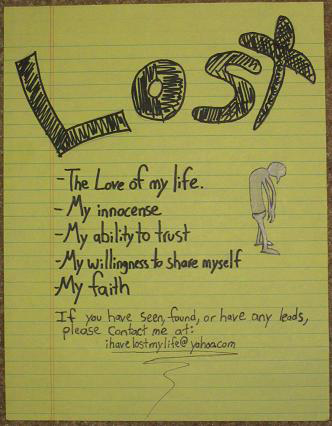 Lost
-The Love of my life.
- My innocense
-My ability to trust
-My willingness to share myself
-My faith
If you have seen, found, or have any leads,
please contact me at:
ihavelostmylife@yahoo.com